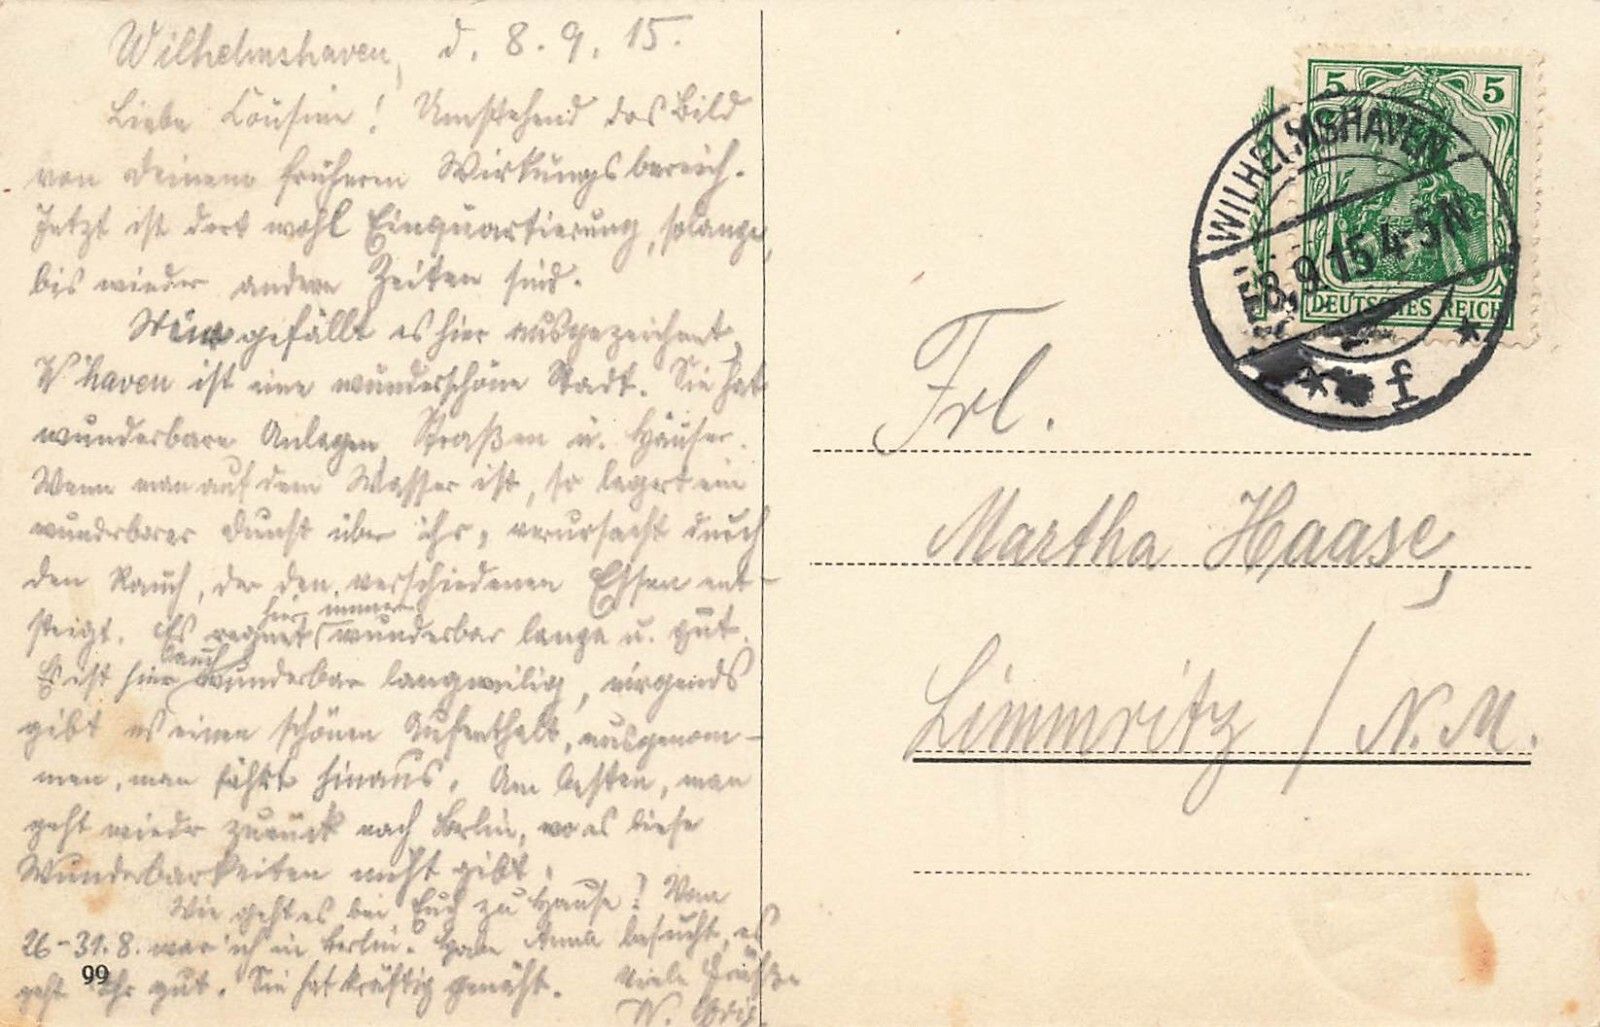 Wilhelmshaven, d. 8. 9. 15.
Liebe Cousine! Umstehend das Bild
von Deinem früheren Wirkungsbereich.
Jetzt ist dort wohl Einquartierung, solange,
bis wieder andere Zeiten sind.
Mir gefällt es hier ausgezeichnet,
W'haven ist eine wunderschöne Stadt. Sie hat
wunderbare Anlagen, Straßen u. Häuser.
Wenn man auf dem Wasser ist, so lagert ein
wunderbarer Dunst über ihr, verursacht durch
den Rauch, der den verschiedenen Essen ent-
steigt. Es regnet hier immer wunderbar lange u. gut.
Es ist hier auch wunderbar langweilig, nirgends
gibt es einen schönen Aufenthalt, ausgenom-
men, man fährt hinaus. Am besten, man
geht wieder zurück nach Berlin, wo es diese
Wunderbarkeiten nicht gibt.
Wie geht es bei Euch zu Hause? Vom
26-31.8. war ich in Berlin. Habe Anna besucht, es
geht ihr gut. Sie hat kräftig genäht. Viele Grüße
W.
99
5 5
DEUTSCHES REICH
WILHELMSHAVEN
8.9.15 4-5N
* f *
Frl.
Martha Haase,
Limmritz / N. M.